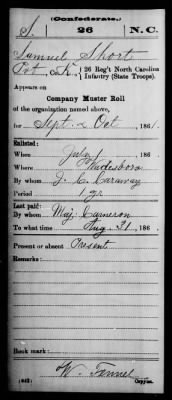 (Confederate.)
S. 26 N.C.
Samuel Short
Pvt, Co. K, 26 Reg't North Carolina
Infantry (State Troops).
Appears on
Company Muster Roll
of the organization named above,
for Sept & Oct, 1861.
Enlisted:
When July 1, 186
Where Wadesboro
By whom J. C. Caraway
Period 1 yr
Last paid:
By whom Maj. Cameron
To what time Aug. 31, 186
Present or absent Present
Remarks:
Book mark:
W. Fennel
(642) Copyist.